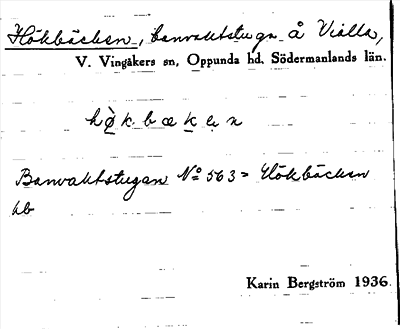 Hökbäcken, banvaktstuga å Vialla,
V. Vingåkers sn, Oppunda hd, Södermanlands län.
hø̀kbækən
Banvaktstugan No 563 = Hökbäcken
kb
Karin Bergström 1936.